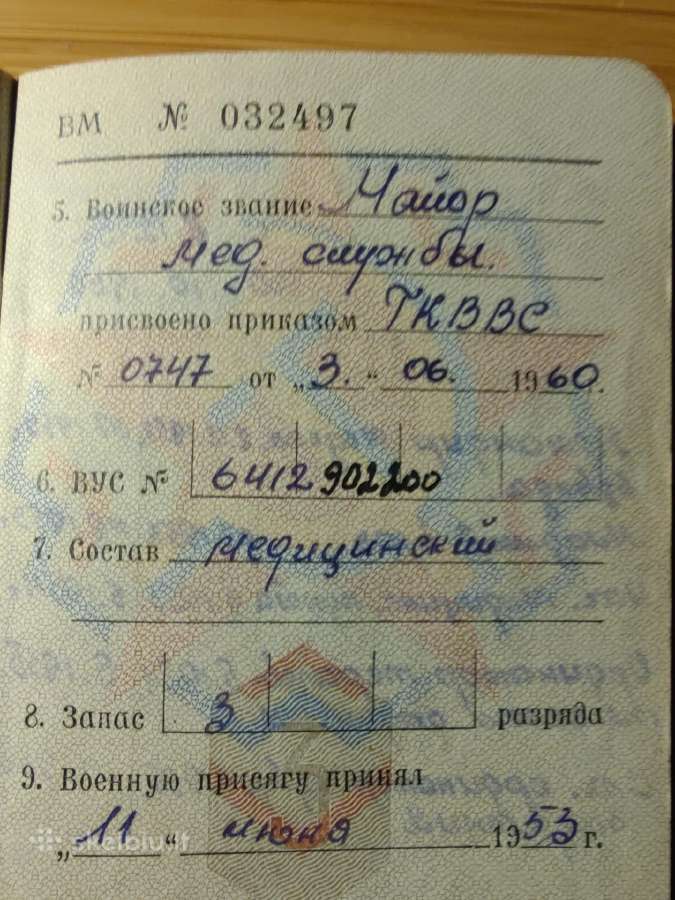 ВМ № 032497
5. Воинское звание Майор
мед. службы.
присвоено приказом ТКВВС
№ 0747 от „3.“ 06. 1960.
6. ВУС № 6412 902200
7. Состав медицинский
8. Запас 3 разряда
9. Военную присягу принял
„11“ июня 1953 г.
skelbiu.lt